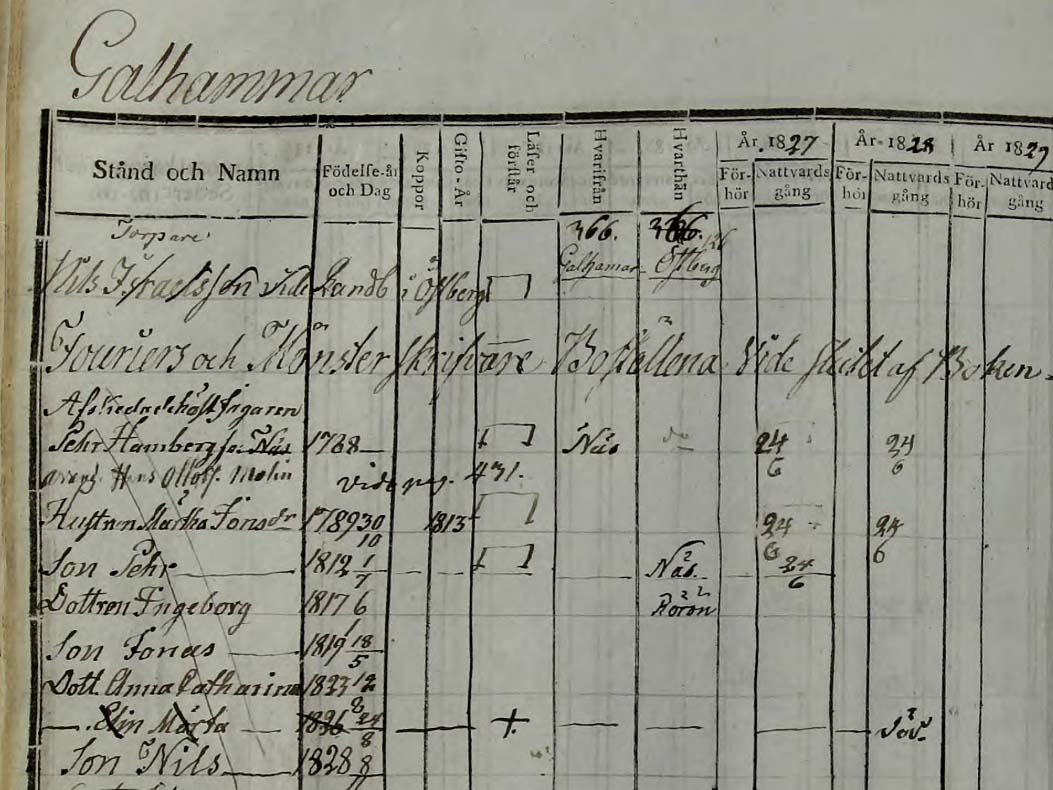 Galhammar
Stånd och Namn Födelse-år och Dag Koppor Gifto-År Läser och förstår Hvarifrån Hvarthän År 1827 År 1828 År 1829
För-hör Nattvards gång För-hör Nattvards gång För-hör Nattvards gång
Torpare 366. 366. 126
Nils Israelsson vide Landb i Östberg Galhamar Östberg
Fouriers och Mönster skrifvare Boställena Vide slutet af Boken
Afskedade
Pehr Hamberg Näs 1788 Näs do 24/6 24/6
Hans Olofs. Molin vide pag. 431.
Hustrun Märtha Jonsdr 1789 30/10 1813 24/6 24/6
Son Pehr 1812 1/7 Näs. 24/6
Dottren Ingeborg 1817 6/1 Rörön
Son Jonas 1819 18/5
Dott. Anna Catharina 1823 12/8
Elin Märta 1826 24/8 +
Son Nils 1828 8